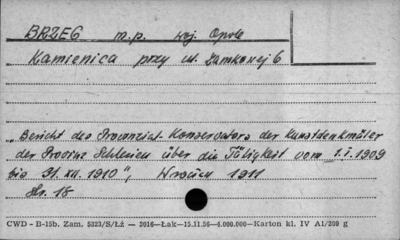 BRZEG m.p. woj. Opole
Kamienica przy ul. Zamkowej 6
„Bericht des Provinzial-Konservators der Kunstdenkmäler
der Provinz Schlesien über die Tätigkeit vom 1.I.1909
bis 31.XII.1910", Wrocław 1911
Nr. 18
CWD - B-15b. Zam. 5323/S/Łż — 2016—Łak—15.11.56—4.000.000—Karton kl. IV A1/200 g